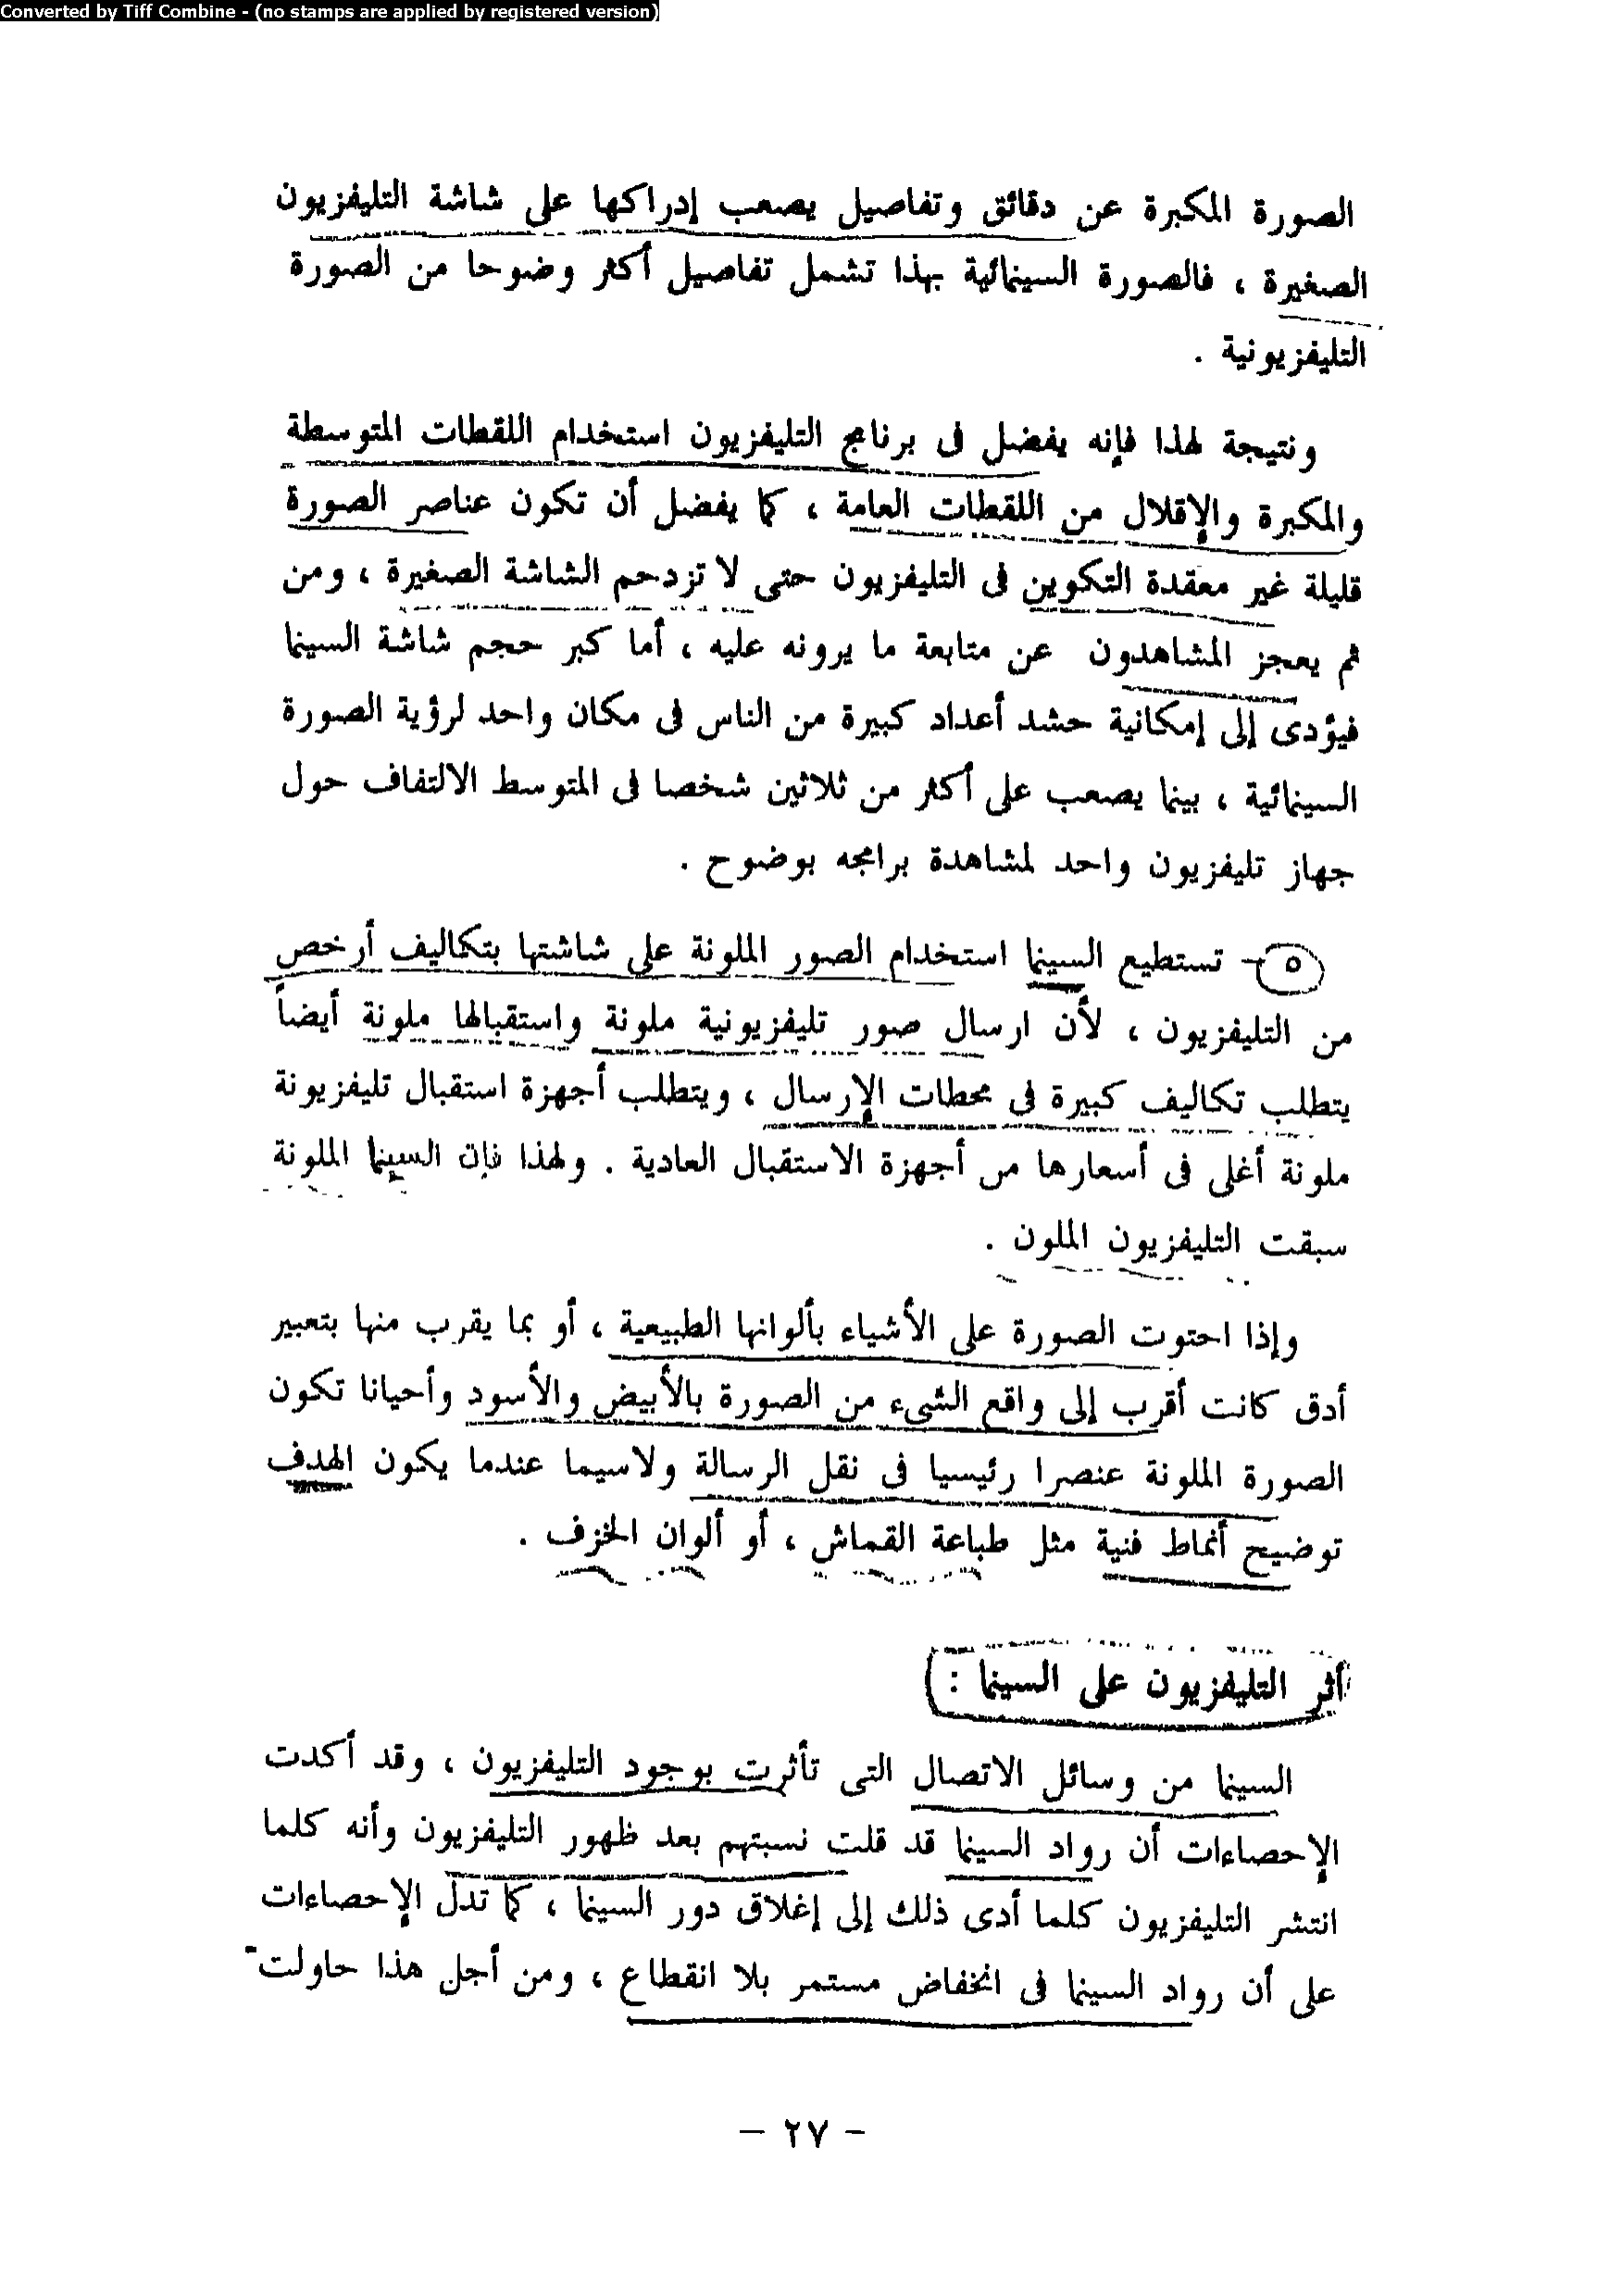 Converted by Tiff Combine - (no stamps are applied by registered version)
الصورة المكبرة عن دقائق وتفاصيل يصعب إدراكها على شاشة التليفزيون
الصغيرة ، فالصورة السينمائية بهذا تشمل تفاصيل أكثر وضوحا من الصورة
التليفزيونية .
ونتيجة لهذا فإنه يفضل فى برنامج التليفزيون استخدام اللقطات المتوسطة
والمكبرة والإقلال من اللقطات العامة ، كما يفضل أن تكون عناصر الصورة
قليلة غير معقدة التكوين فى التليفزيون حتى لا تزدحم الشاشة الصغيرة ، ومن
ثم يعجز المشاهدون عن متابعة ما يرونه عليه ، أما كبر حجم شاشة السينما
فيؤدى إلى إمكانية حشد أعداد كبيرة من الناس فى مكان واحد لرؤية الصورة
السينمائية ، بينما يصعب على أكثر من ثلاثين شخصا فى المتوسط الالتفاف حول
جهاز تليفزيون واحد لمشاهدة برامجه بوضوح .
٥ - تستطيع السينما استخدام الصور الملونة على شاشتها بتكاليف أرخص
من التليفزيون ، لأن ارسال صور تليفزيونية ملونة واستقبالها ملونة أيضاً
يتطلب تكاليف كبيرة فى محطات الإرسال ، ويتطلب أجهزة استقبال تليفزيونة
ملونة أغلى فى أسعارها من أجهزة الاستقبال العادية . ولهذا فإن السينما الملونة
سبقت التليفزيون الملون .
وإذا احتوت الصورة على الأشياء بألوانها الطبيعية ، أو بما يقرب منها بتعبير
أدق كانت أقرب إلى واقع الشىء من الصورة بالأبيض والأسود وأحيانا تكون
الصورة الملونة عنصرا رئيسيا فى نقل الرسالة ولاسيما عندما يكون الهدف
توضيح أنماط فنية مثل طباعة القماش ، أو ألوان الخزف .
أثر التليفزيون على السينما :
السينما من وسائل الاتصال التى تأثرت بوجود التليفزيون ، وقد أكدت
الإحصاءات أن رواد السينما قد قلت نسبتهم بعد ظهور التليفزيون وأنه كلما
انتشر التليفزيون كلما أدى ذلك إلى إغلاق دور السينما ، كما تدل الإحصاءات
على أن رواد السينما فى انخفاض مستمر بلا انقطاع ، ومن أجل هذا حاولت
- ٢٧ -